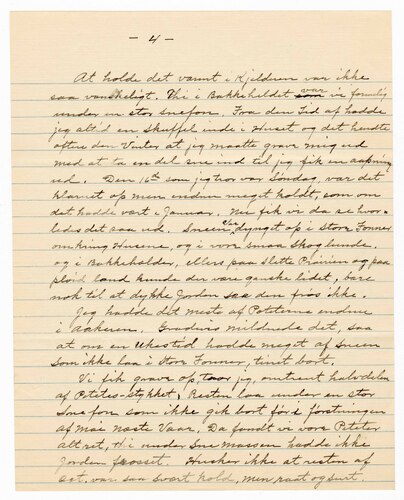 - 4 -
At holde det varmt i Kjelderen var ikke
saa vanskeligt. Thi i Bakkeheldet var vi formelig
under en stor snefon. Fra den Tid af hadde
jeg altid en Skuffel inde i Huset og det hendte
oftere den Vinter at jeg maatte grave mig ud
med at ta en del sne ind til jeg fik en aapning
ud. Den 16th som jeg tror var Søndag, var det
klarnet op men endnu meget koldt, som om
det hadde vært i Januar. Nu fik vi da se hvor-
ledes det saa ud. Sneen var dynget op i Store Fonner
omkring Husene, og i vore smaa Skoglunde,
og i Bakkehelder, ellers paa Slette Prairien og paa
pløid land kunde der være ganske lidet, bare
nok til at dykke Jorden saa den frøs ikke.
Jeg hadde det meste af Poteterne endnu
i Aakeren. Gradvis mildnede det, saa
at om en ukestid hadde meget af Sneen
som ikke laa i Store Fonner, tinet bort.
Vi fik grave op, tror jeg, omtrent halvdelen
af Potetes-stykket, Resten laa under en stor
Snefon som ikke gik bort før i førstningen
af Mai næste Vaar. Da fandt vi vore Poteter
alt ret, thi under Sne Massen hadde ikke
Jorden frosset. Husker ikke at resten af
var saa svært kold, men raat og surt.